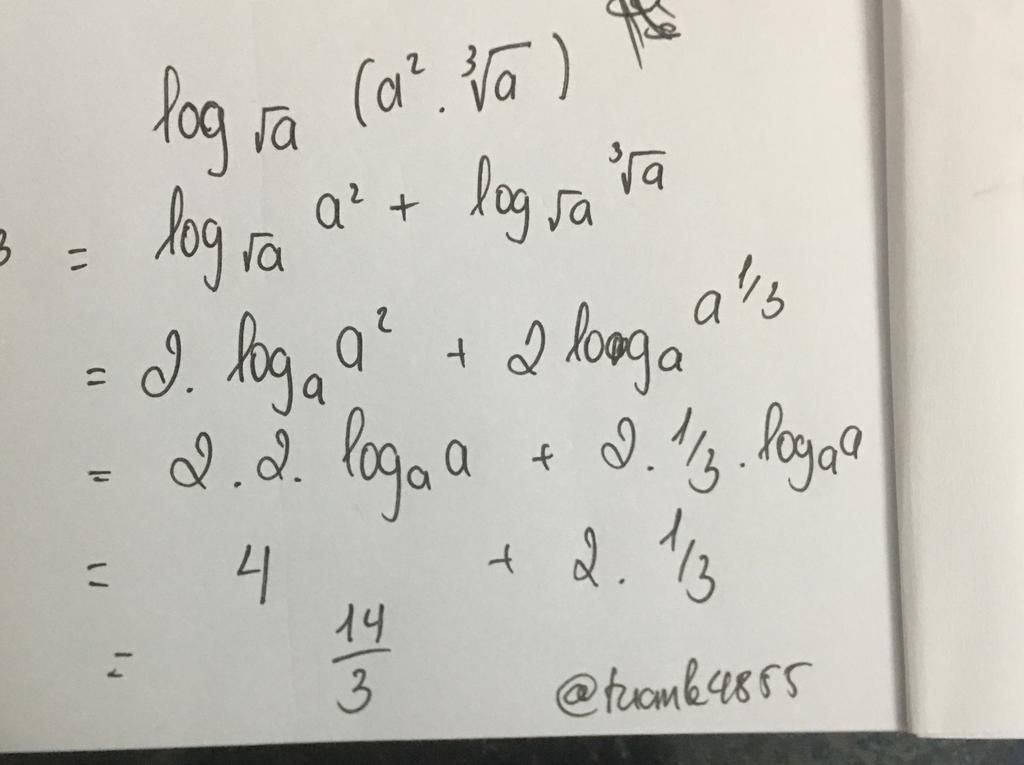 log √a (a² . ³√a)
= log √a a² + log √a ³√a
= 2. logₐ a² + 2 logₐ a^1/3
= 2 . 2. logₐ a + 2. 1/3 . logₐ a
= 4 + 2 . 1/3
= 14/3